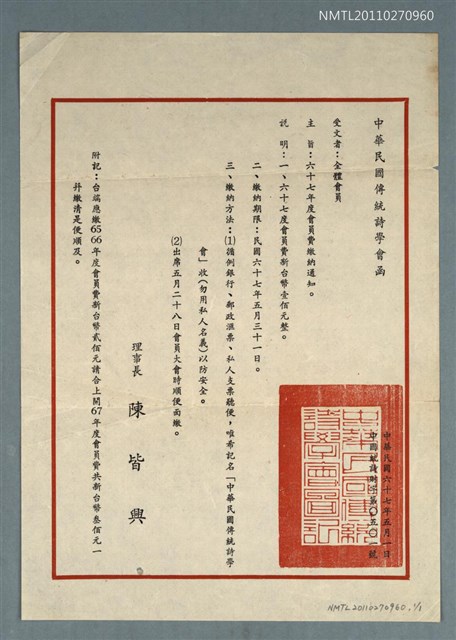 NMTL20110270960
中華民國傳統詩學會函
中華民國六十七年五月一日
中國統詩財字第〇五〇一號
受文者：全體會員
主旨：六十七年度會員費繳納通知。
説明：一、六十七度會員費新台幣壹佰元整。
二、繳納期限：民國六十七年五月三十一日。
三、繳納方法：⑴循例銀行、郵政滙票、私人支票聽便，唯希記名「中華民國傳統詩學
會」收（勿用私人名義）以防安全。
⑵出席五月二十八日會員大會時順便面繳。
理事長 陳皆興
附記：台端應繳65 66年度會員費新台幣貳佰元請合上開67年度會員費共新台幣叁佰元一
幷繳清是便順及。
中華民國傳統
詩學會圖記
NMTL20110270960.1/1